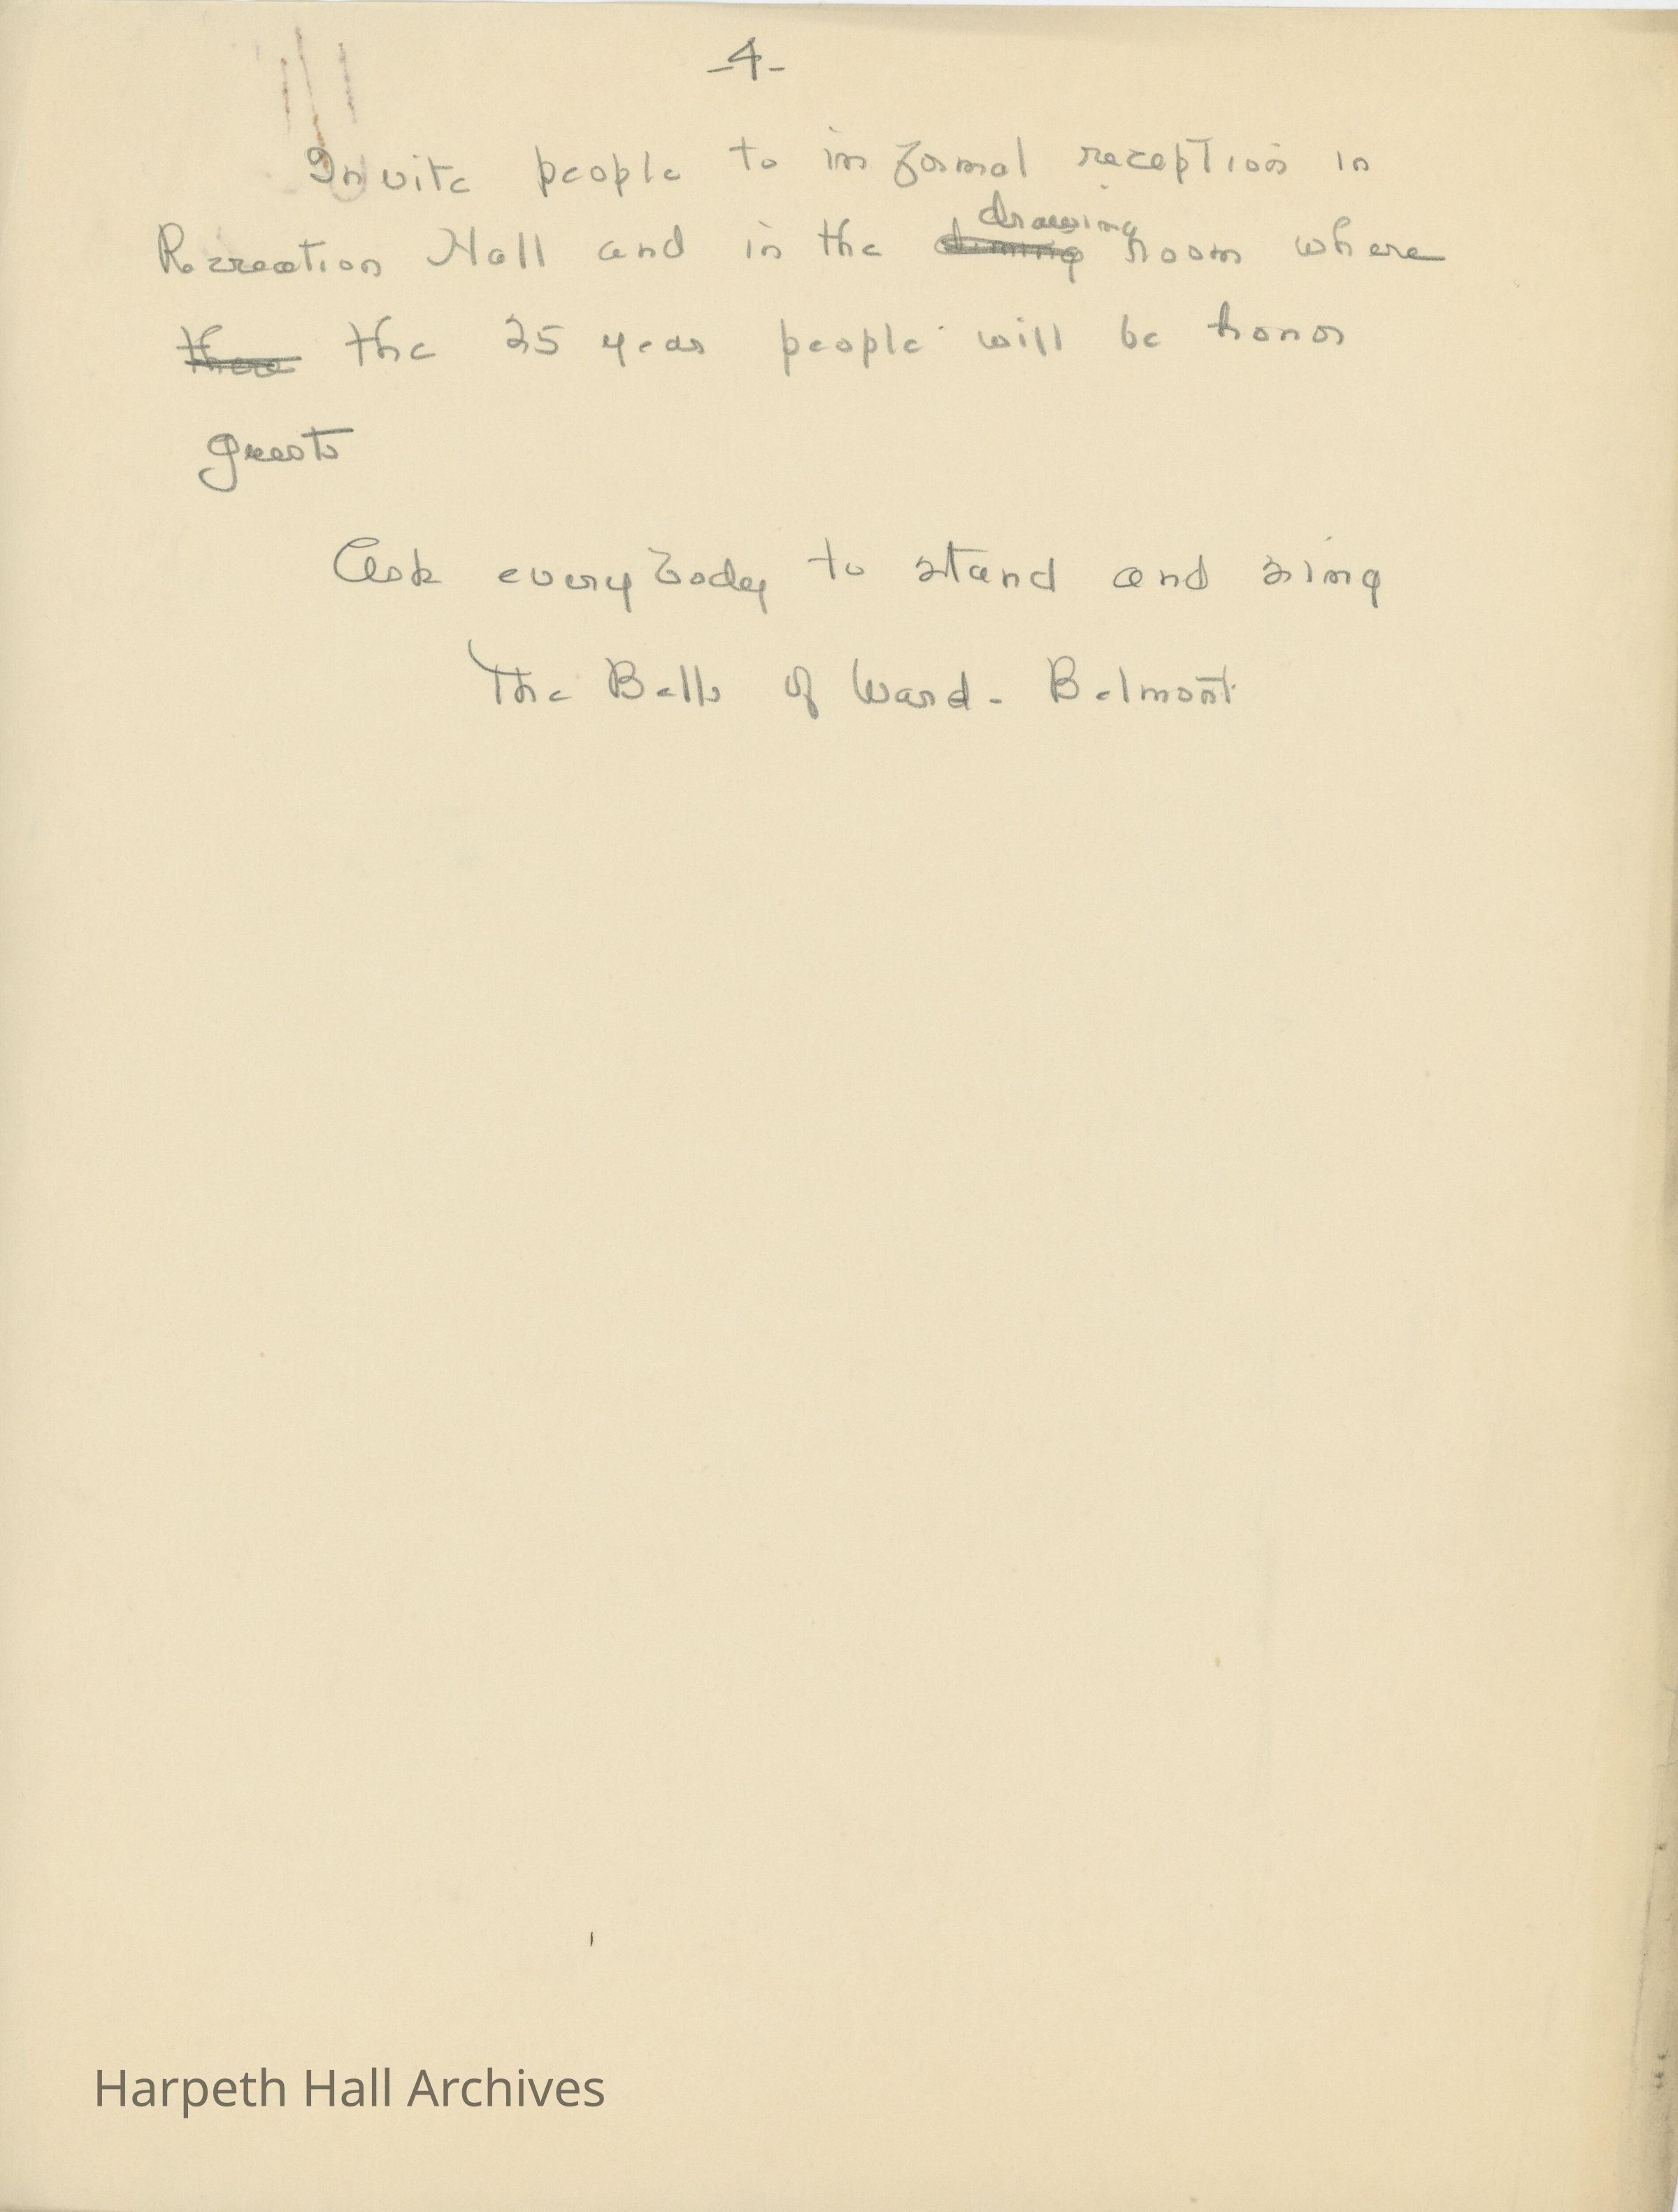 -4-
Invite people to informal reception in
Recreation Hall and in the ~~dining~~ drawing room where
~~there~~ the 25 year people will be honor
guests
Ask everybody to stand and sing
The Bells of Ward-Belmont
Harpeth Hall Archives